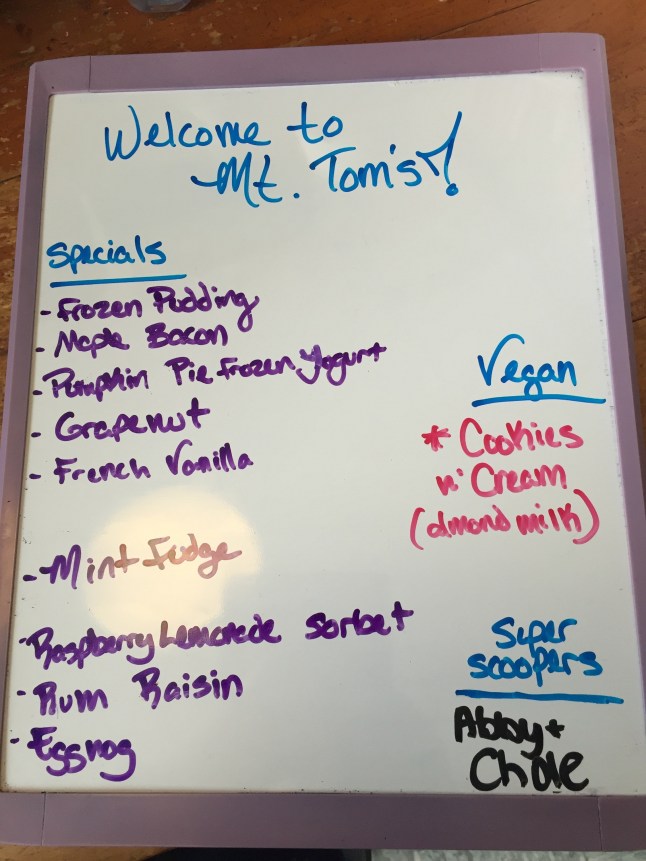 Welcome to
Mt. Tom's!
Specials
- Frozen Pudding
- Maple Bacon
- Pumpkin Pie Frozen Yogurt
- Grapenut
- French Vanilla
- Mint Fudge
- Raspberry Lemonade Sorbet
- Rum Raisin
- Eggnog
Vegan
* Cookies
n' Cream
(almond milk)
Super
scoopers
Abby +
Chloe